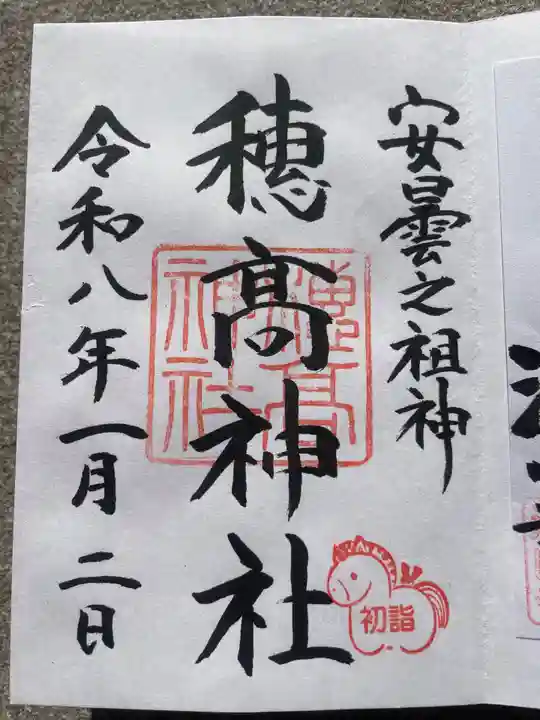 安曇之祖神
穂髙神社
穂高神社
令和八年一月二日
初詣